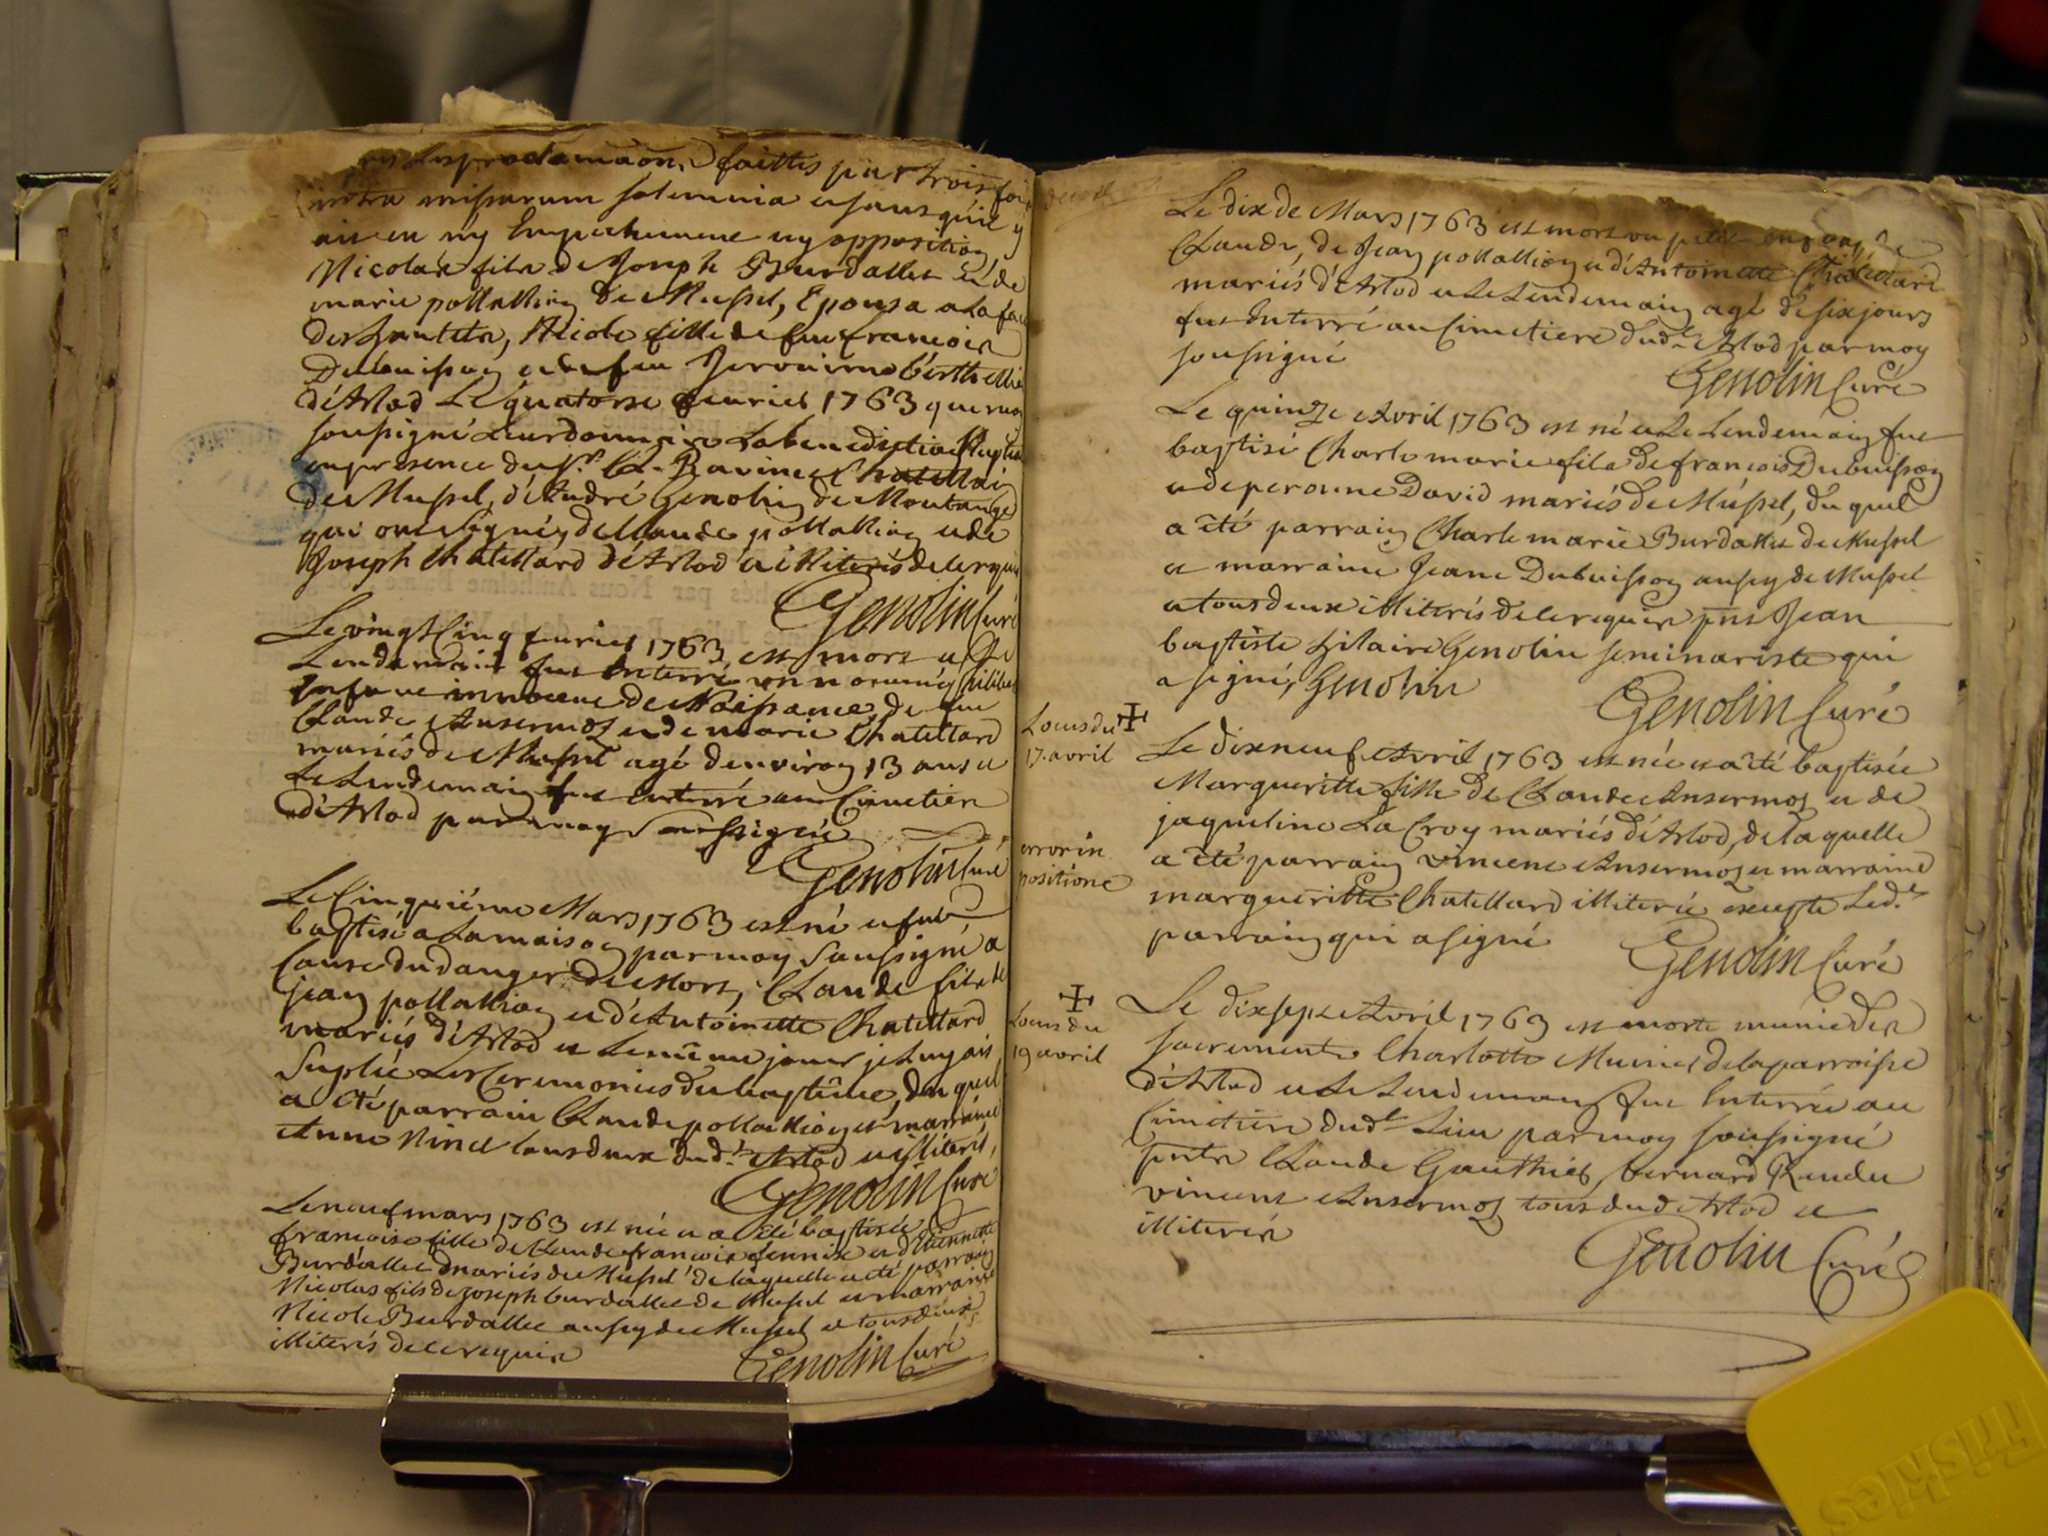 les proclamaõns faittes par trois fois
intra missarum solemnia et sans qu'il y
ait eu ny Empechement ny opposition,
Nicolas fils de Joseph Burdallet et de
marie pollalliong de Mussel, Epousa a la face
des autels, Nicole fille de feu francois
Dubuisson et de feu Jeronime berthellie
d'Arlod Le quatorse feurier 1763 que moy
soussigné Leur donnaire La benediction Nuptia
en presence du Sr. Cl. Ravinet Chatellain
de Mussel, d'André Genolin de Montange
qui ont signés, de Claude pollalliong et de
Joseph Chatellard d'Arlod et illiterés de ce requis
Genolin Curé
Le vingt Cinq feurier 1763, est mort et Le
Lendemain fut Enterré un nommé
Enfant innocent de Naissance, de feu
Claude Ansermoz et de marie Chatellard
mariés de Mussel agé d'enviroy 13 ans et
Le Lendemaing fut enterré au Cimetiere
d'Arlod par moy Soussigné
Genolin Curé
Le Cinquiéme Mars 1763 est né et fut
baptisé a La maison par moy Soussigné a
Cause du danger de Mort, Claude fils de
jean pollalliong et d'Antoinette Chatellard
mariés d'Arlod et Le même jour je Luy ais
Suplée Les Ceremonies du baptême, du quel
a été parrain Claude pollalliong et marraine
Anne Ninet tous deux dud.t Arlod et illiterés,
Genolin Curé
Le neuf mars 1763 est née et a été baptisée
francoise fille de Claude francois fennix et d'Etiennette
Burdallet mariés de Mussel de laquelle a été parraing
Nicolas fils de Joseph burdallet de Mussel et marraine
Nicole Burdallet aussy de Mussel et tous deux
illiterés de ce requis
Genolin Curé
Le dix de Mars 1763 est mort un petit
Claude, de Jean pollalliong et d'Antoinette Chatellard
mariés d'Arlod et Le Lendemaing agé de six jours
fut Enterré au Cimetiere dud.t Arlod par moy
soussigné
Genolin Curé
Le quinze Avril 1763 est né et Le Lendemaing fut
baptisé Charle marie fils de francois Dubuisson
et de peronne David mariés de Mussel, du quel
a été parraing Charle marie Burdallet de Mussel
et marraine Jeane Dubuisson aussy de Mussel
et tous deux illiterés de ce requis pnt Jean
baptiste hilaire Genolin seminariste qui
a signé, Genolin
Genolin Curé
Locus du ✝
17. avril
Le dix neuf Avril 1763 est née et a été baptisée
Margueritte fille de Claude Ansermoz et de
jaqueline La Croy mariés d'Arlod, de laquelle
a été parraing vincent Ansermoz et marraine
margueritte Chatellard illiterée excepte Led.t
parraing qui a signé
Genolin Curé
error in
positione
✝
Locus du
19 avril
Le dixsept Avril 1763 est morte munie des
sacrements Charlotte Muinet de la parroisse
d'Arlod et Le Lendemaing fut Enterrée au
Cimetiere dud.t Lieu par moy soussigné
pnts Claude Gauthier, bernard Rendu
vincent Ansermoz tous dud.t Arlod et
illiterés
Genolin Curé
Friskies